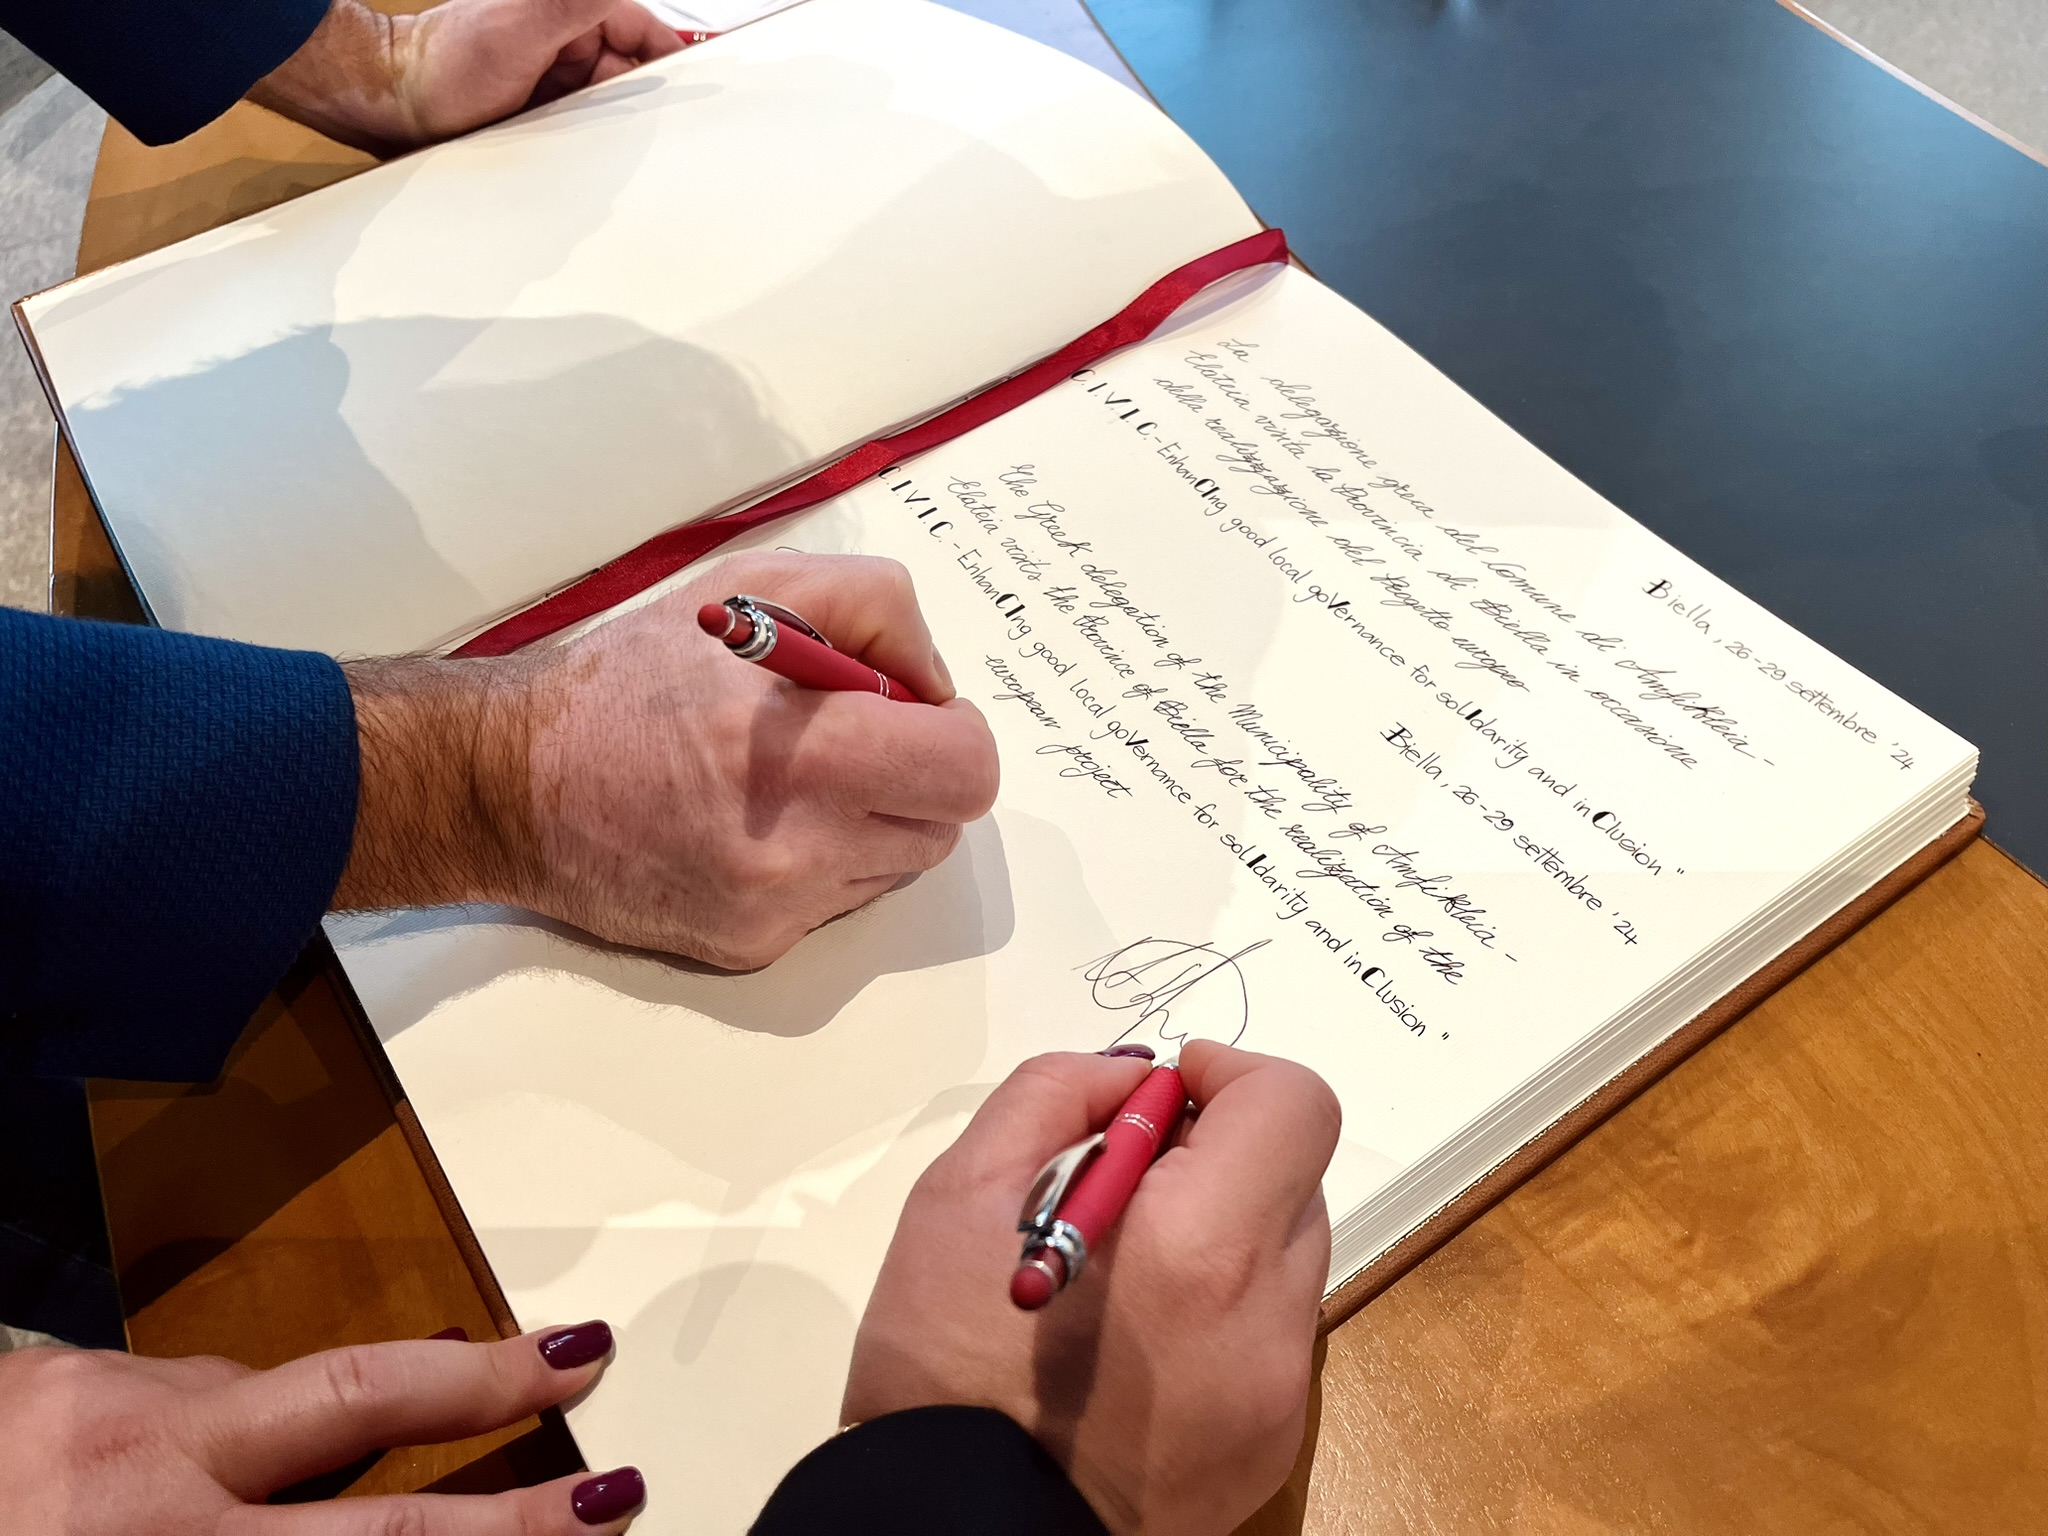 Biella, 26-29 settembre '24
La delegazione greca del Comune di Amfikleia-
Elateia visita la Provincia di Biella in occasione
della realizzazione del Progetto europeo
C.I.V.I.C.-EnhanCIng good local goVernance for solIdarity and inClusion"
Biella, 26-29 settembre '24
The Greek delegation of the Municipality of Amfikleia-
Elateia visits the Province of Biella for the realization of the
C.I.V.I.C.-EnhanCIng good local goVernance for solIdarity and inClusion"
european project